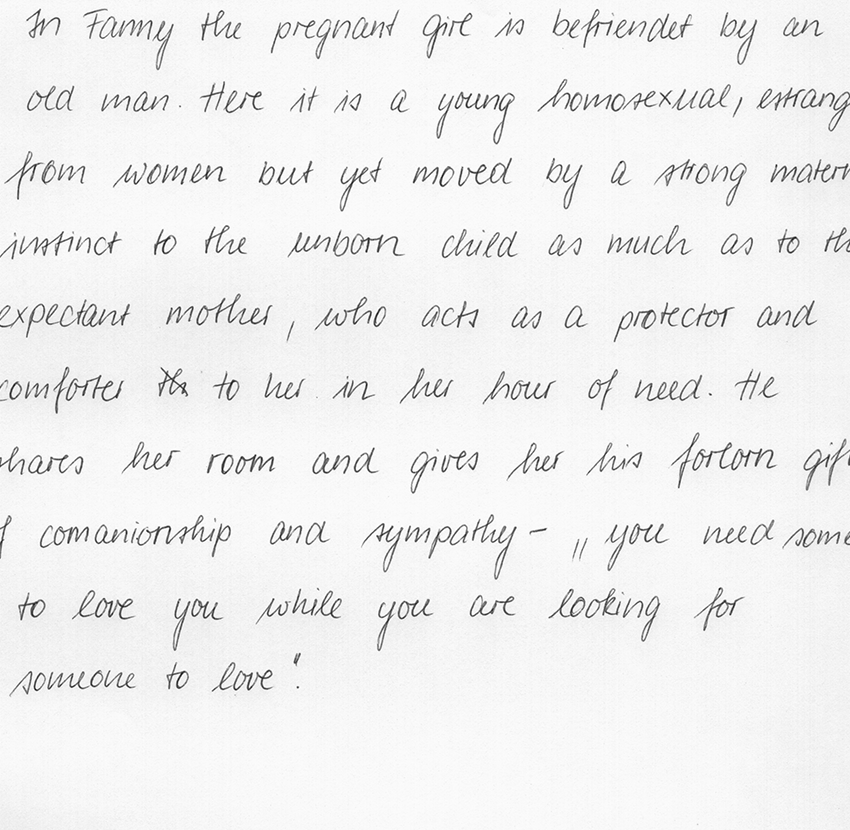 In Fanny the pregnant girl is befriendet by an
old man. Here it is a young homosexual, estrang
from women but yet moved by a strong matern
instinct to the unborn child as much as to th
expectant mother, who acts as a protector and
comforter to her in her hour of need. He
shares her room and gives her his forlorn gift
of comanionship and sympathy - „you need some
to love you while you are looking for
someone to love".